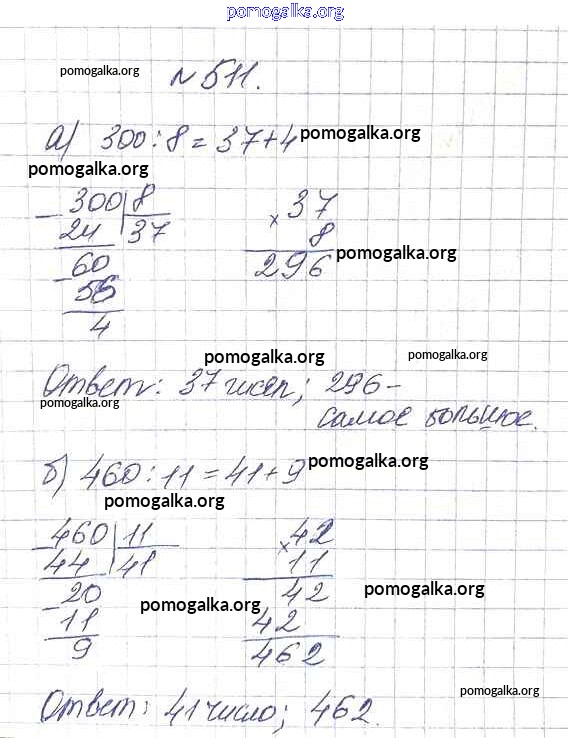 pomogalka.org
pomogalka.org
№511.
а) 300:8=37+4 pomogalka.org
pomogalka.org
300 8 37
24 37 × 8
60 296 pomogalka.org
56
4
pomogalka.org pomogalka.org
Ответ: 37 чисел; 296-
pomogalka.org самое большое.
б) 460:11=41+9 pomogalka.org
pomogalka.org
460 11 × 42
44 41 11
20 42 pomogalka.org
11 pomogalka.org 42
9 462
pomogalka.org
Ответ: 41 число; 462.